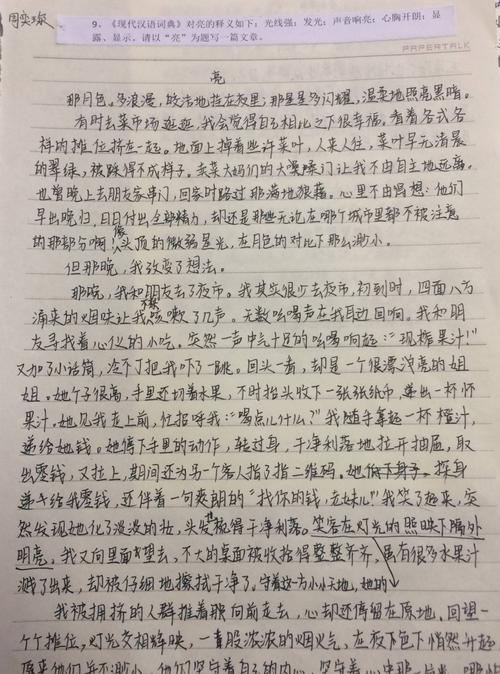 周奕璇
9、《现代汉语词典》对亮的释义如下：光线强；发光；声音响亮；心胸开朗；显
露、显示。请以“亮”为题写一篇文章。
PAPERTALK
亮
那月色。多浪漫，皎洁地挂在夜里；那星星多闪耀，温柔地照亮黑暗。
有时去菜市场逛逛，我会觉得自己相比之下很幸福。看着各式各
样的摊位挤在一起。地面上掉着些许菜叶，人来人往，菜叶早无清晨
的翠绿，被踩得不成样子。卖菜大妈们的大嗓门让我不由自主地远离。
也曾晚上去朋友家串门，回家时路过那满地狼藉。心里不由得想：他们
早出晚归，日日付出全部精力，却还是那些无论在哪个城市里都不被注意
的那部分啊！像头顶的微弱星光，在月色的对比下那么渺小。
但那晚，我改变了想法。
那晚，我和朋友去了夜市。我其实很少去夜市，初到时，四面八方
涌来的烟味让我咳嗽了几声。无数吆喝声在我耳边回响。我和朋
友寻找着心仪的小吃。突然一声中气十足的吆喝响起：“现榨果汁！”
又加了小话筒，冷不丁把我吓了一跳。回头一看，却是一个很漂亮的姐
姐。她个子很高，手里还切着水果，不时抬头收下一张张纸币，递出一杯杯
果汁。她见我走上前，忙招呼我：“喝点儿什么？”我随手拿起一杯橙汁，
递给她钱。她停下手里的动作，转过身，干净利落地拉开抽屉，取
出零钱，又拉上，期间还为另一个客人指了指二维码。她 探身
递给我零钱，还伴着一句爽朗的“找你的钱，在妹儿！”我笑了起来，突
然发现她化了淡淡的妆，头发梳得干净利落。笑容在灯光的照映下格外
明亮。我又向里面望去，不大的桌面被收拾得整整齐齐，虽有很多水果汁
溅了出来，却被仔细地擦拭干净了。守着这方小小天地，她的
我被拥挤的人群推着向前走去，心却还停留在原地。回望一
个个摊位，灯光交相辉映，一股浓浓的烟火气，在夜色下悄然升起
原来他们并不渺小，他们坚守着自己的内心，坚守着心中那一片光，